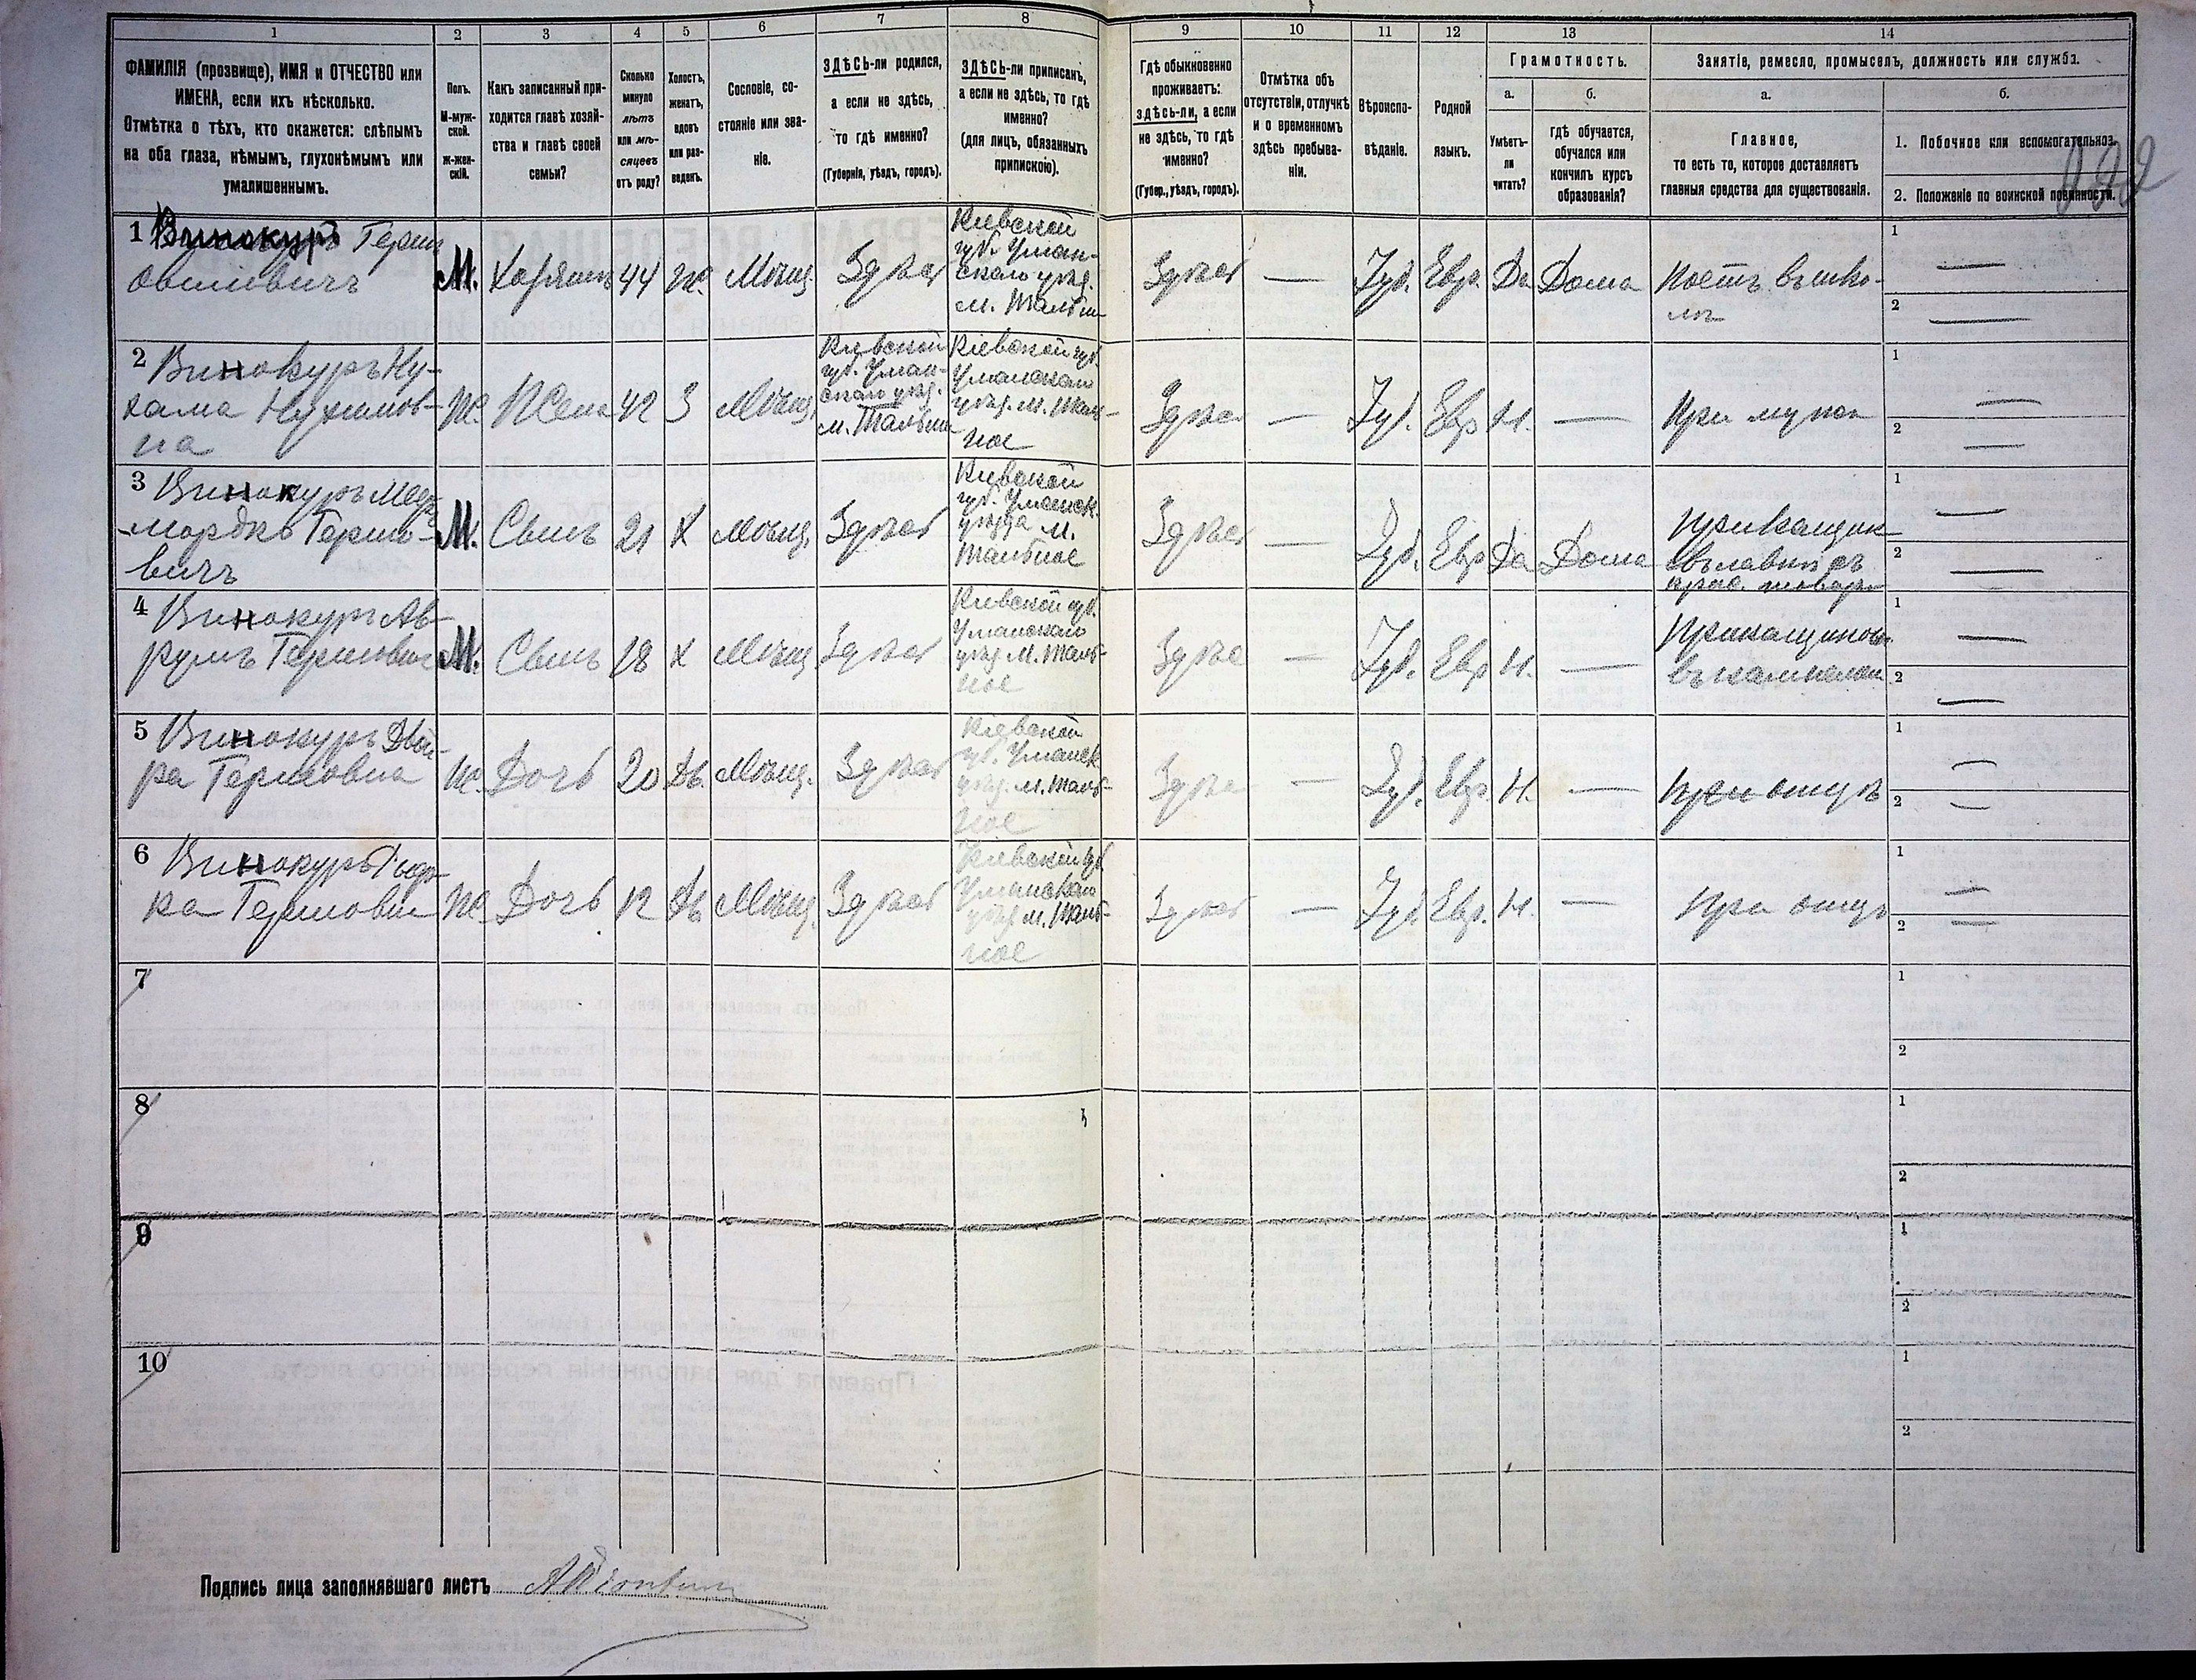 1
2
3
4
5
6
7
8
9
10
11
12
13
14
ФАМИЛІЯ (прозвище), ИМЯ и ОТЧЕСТВО или
ИМЕНА, если ихъ нѣсколько.
Отмѣтка о тѣхъ, кто окажется: слѣпымъ
на оба глаза, нѣмымъ, глухонѣмымъ или
умалишеннымъ.
Полъ.
М-муж-
ской.
Ж-жен-
скій.
Какъ записанный при-
ходится главѣ хозяй-
ства и главѣ своей
семьи?
Сколько
минуло
лѣтъ
или мѣ-
сяцевъ
отъ роду?
Холостъ,
женатъ,
вдовъ
или раз-
веденъ.
Сословіе, со-
стояніе или зва-
ніе.
ЗДѢСЬ-ли родился,
а если не здѣсь,
то гдѣ именно?
(Губернія, уѣздъ, городъ).
ЗДѢСЬ-ли приписанъ,
а если не здѣсь, то гдѣ
именно?
(для лицъ, обязанныхъ
припискою).
Гдѣ обыкновенно
проживаетъ:
здѣсь-ли, а если
не здѣсь, то гдѣ
именно?
(Губер., уѣздъ, городъ).
Отмѣтка объ
отсутствіи, отлучкѣ
и о временномъ
здѣсь пребыва-
ніи.
Вѣроиспо-
вѣданіе.
Родной
языкъ.
Грамотность.
а.
Умѣетъ-
ли
читать?
б.
гдѣ обучается,
обучался или
кончилъ курсъ
образованія?
Занятіе, ремесло, промыселъ, должность или служба.
а.
Главное,
то есть то, которое доставляетъ
главныя средства для существованія.
б.
1. Побочное или вспомогательное.
2. Положеніе по воинской повинности.
1 Винокуръ Герш
Овшіевичъ
М.
Хозяинъ
44
Ж.
Мѣщ.
Здѣсь
Кіевской
губ. Уман-
скаго уѣзд.
м. Тальн
Здѣсь
—
Іуд.
Евр.
Да
Дома
въ шко-
лѣ
1 —
2 —
2 Винокуръ Ну-
хама Нухимов-
на
Ж.
Жена
42
З
Мѣщ.
Кіевской
губ. Уман-
скаго уѣзд.
м. Тальн
Кіевской губ.
Уманскаго
уѣзд. м. Таль-
ное
Здѣсь
—
Іуд.
Евр
Н.
—
При мужѣ
1 —
2 —
3 Винокуръ
Мордко Гершо-
вичъ
М.
Сынъ
21
Х
Мѣщ.
Здѣсь
Кіевской
губ. Уманск.
уѣзда м.
Тальное
Здѣсь
—
Іуд.
Евр
Да
Дома
Прикащик
въ лавкѣ съ
крас. товар.
1 —
2 —
4 Винокуръ Ав-
румъ Гершович
М.
Сынъ
18
Х
Мѣщ
Здѣсь
Кіевской губ.
Уманскаго
уѣзд м. Таль-
ное
Здѣсь
—
Іуд.
Евр
Н.
—
Прикащиком
1 —
2 —
5 Винокуръ Двой-
ра Гершовна
Ж.
Дочь
20
Дѣ.
Мѣщ.
Здѣсь
Кіевской
губ. Уманск
уѣзд. м. Таль-
ное
Здѣсь
—
Іуд.
Евр.
Н.
—
При отцѣ
1 —
2 —
6 Винокуръ
ка Гершовна
Ж
Дочь
12
Дѣ
Мѣщ.
Здѣсь
Кіевской губ.
Уманскаго
уѣзд м. Таль-
ное
Здѣсь
—
Іуд.
Евр.
Н.
—
При отцѣ
1 —
2 —
7
1
2
8
1
2
9
1
2
10
1
2
Подпись лица заполнявшаго листъ